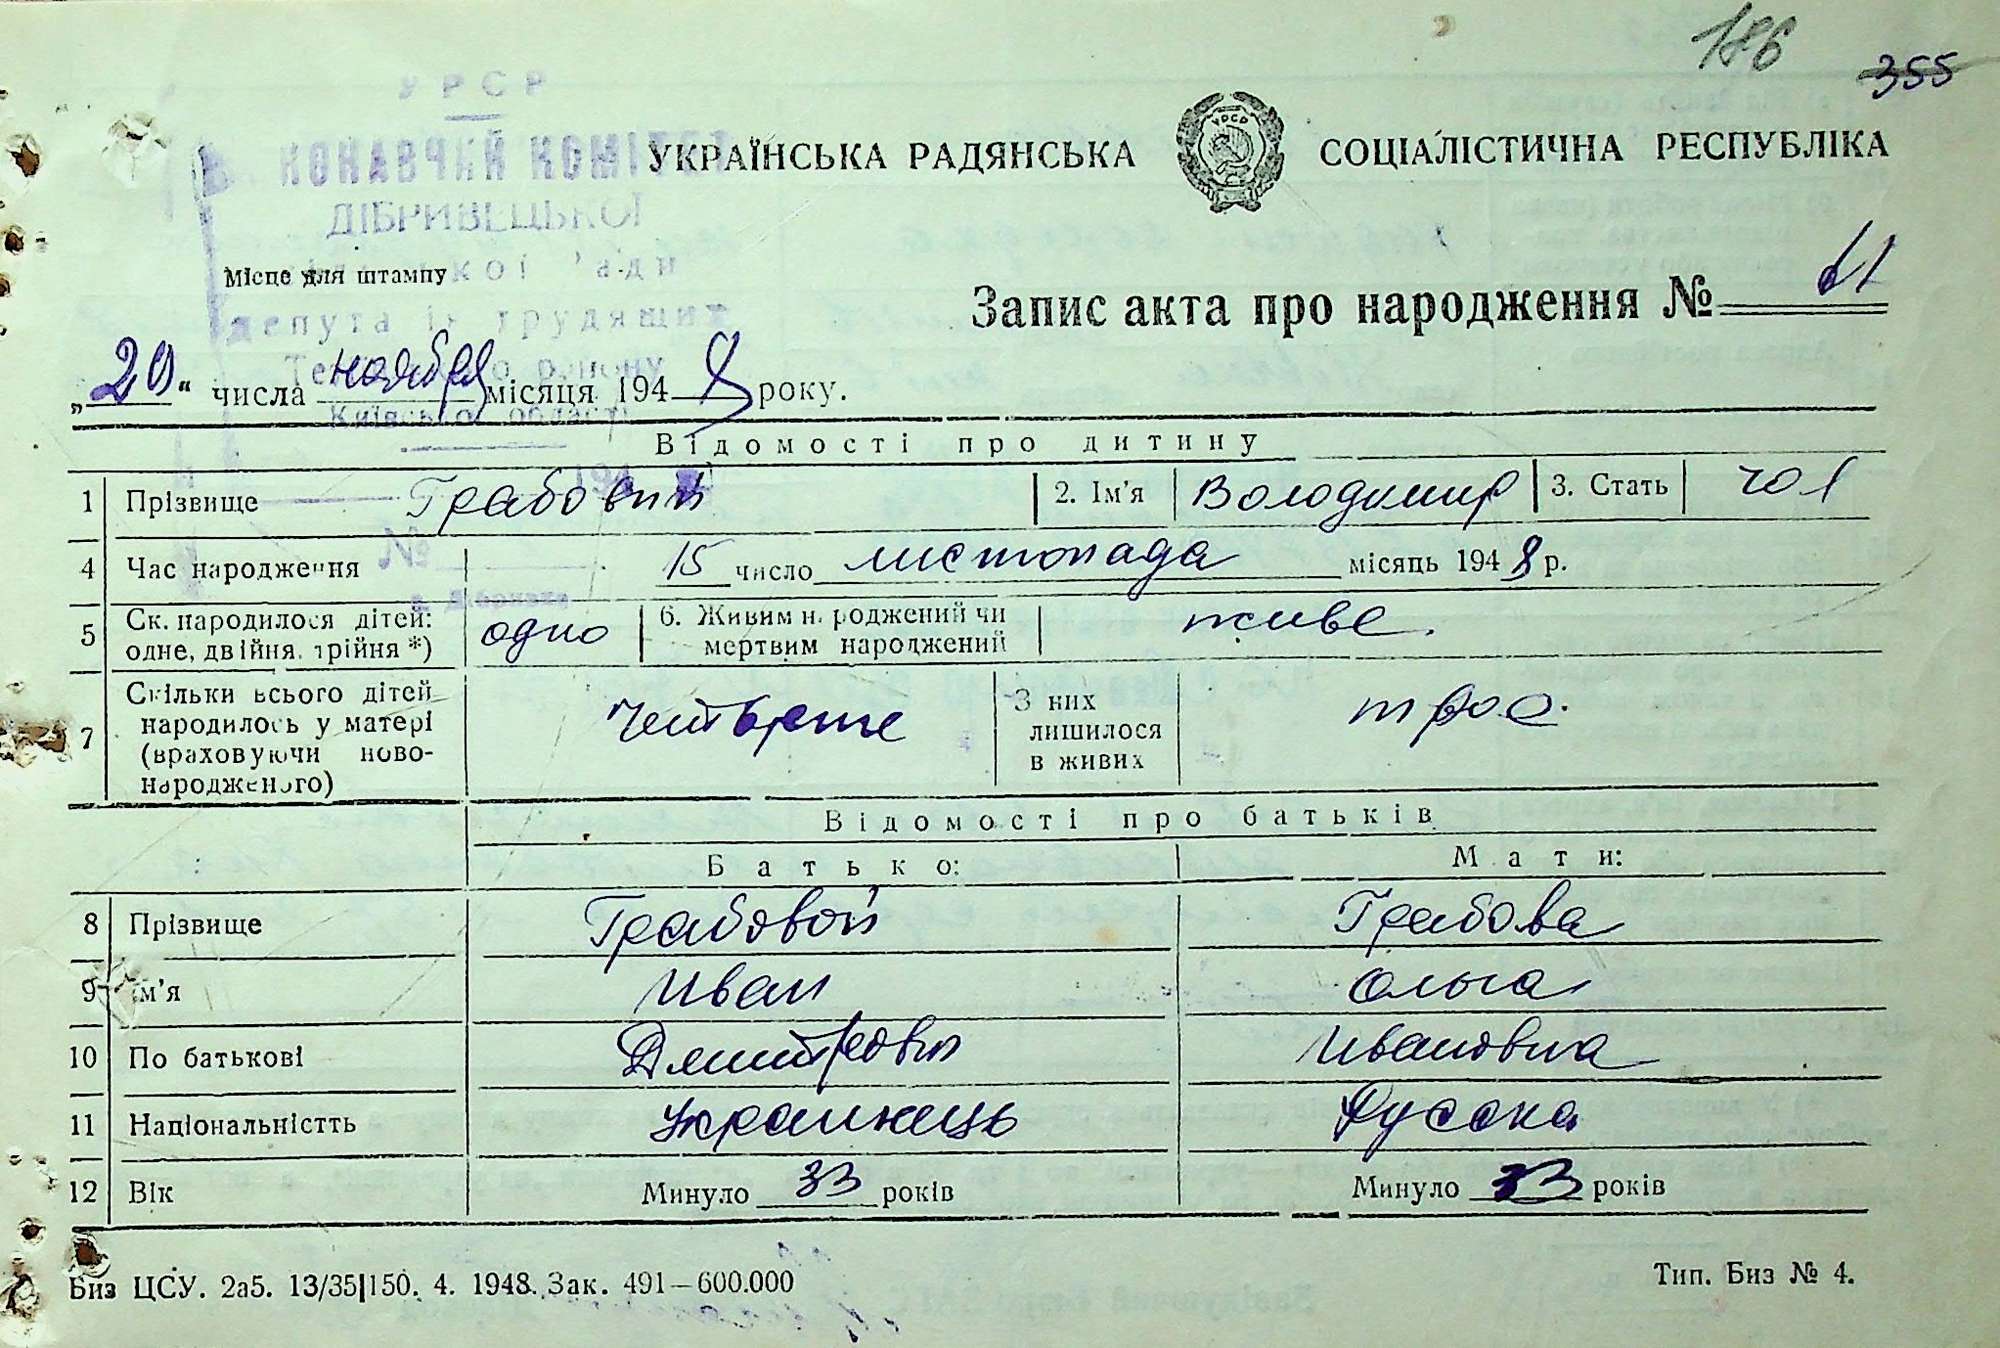 186
355
УРСР
КОНАВЧИЙ КОМІТЕТ
УКРАЇНСЬКА РАДЯНСЬКА СОЦІАЛІСТИЧНА РЕСПУБЛІКА
ДІБРИВЕЦЬКОЇ
Місце для штампу
Запис акта про народження № 61
„20“ числа ноября місяця 1948 року.
Київсько області
Відомості про дитину
1 Прізвище Грабовий 2. Ім'я Володимир 3. Стать чол
№
4 Час народження 15 число листопада місяць 1948 р.
5 Ск. народилося дітей: одно 6. Живим н роджений чи живе.
одне, двійня, трійня *) мертвим народжений
7 Скільки всього дітей народилось у матері (враховуючи ново-народженого) четверте З них лишилося в живих троє.
Відомості про батьків
Батько: Мати:
8 Прізвище Грабовой Грабова
9 Ім'я Иван Ольга
10 По батькові Дмитрович Ивановна
11 Національність Українець Русска
12 Вік Минуло 33 років Минуло 33 років
Биз ЦСУ. 2а5. 13/35|150. 4. 1948. Зак. 491—600.000 Тип. Биз № 4.